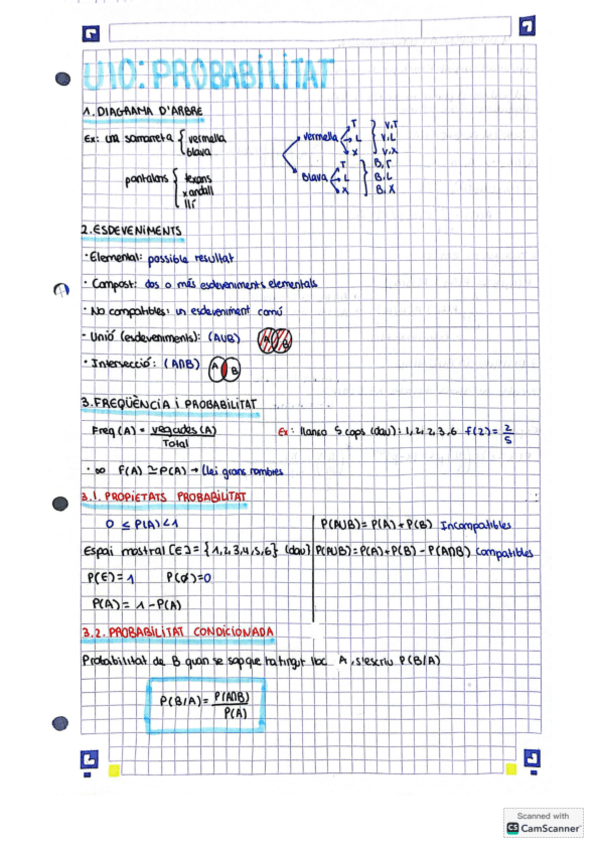 U10: PROBABILITAT
1. DIAGRAMA D'ARBRE
Ex: una samarreta { vermella
blava
pantalons { texans
xandall
llí
vermella T } V,T
L V,L
X V,X
Blava T } B,T
L B,L
X B,X
2. ESDEVENIMENTS
· Elemental: possible resultat
· Compost: dos o més esdeveniments elementals
· No compatibles: un esdeveniment comú
- Unió (esdeveniments): (AUB) A B
· Intersecció: (A∩B) A B
3. FREQÜÈNCIA i PROBABILITAT
Freq (A) = vegades (A) / Total
Ex: llanço 5 cops (dau): 1, 2, 2, 3, 6 f(2) = 2/5
· ∞ f(A) ≃ P(A) → Llei grans nombres
3.1. PROPIETATS PROBABILITAT
0 ≤ P(A) < 1
Espai mostral [E] = {1,2,3,4,5,6} (dau)
P(E) = 1 P(Ø) = 0
P(A) = 1 - P(A)
P(AUB) = P(A) + P(B) Incompatibles
P(AUB) = P(A) + P(B) - P(A∩B) compatibles
3.2. PROBABILITAT CONDICIONADA
Probabilitat de B quan se sap que ha tingut lloc A, s'escriu P(B/A)
P(B/A) = P(A∩B) / P(A)
Scanned with
CS CamScanner